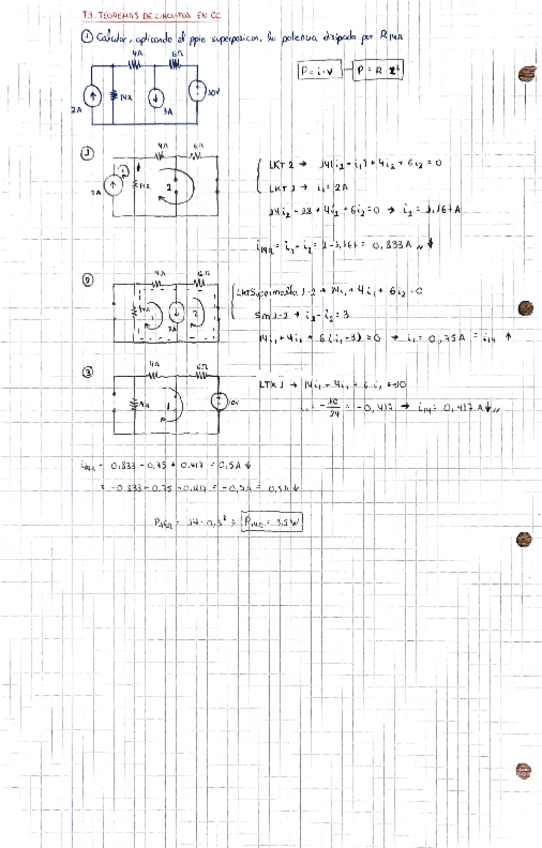 T.3. TEOREMAS DE CIRCUITOS EN CC
① Calcular, aplicando el ppio superposicion, la potencia disipada por R14Ω
4Ω 6Ω
P = i·v P = R·I²
2A 14Ω 3A 10V
①
4Ω 6Ω
LKT 2 → 14(i2 - i1) + 4i2 + 6i2 = 0
2A 1 14Ω 2
LKT 1 → i1 = 2A
14i2 - 28 + 4i2 + 6i2 = 0 → i2 = 1,167A
i14Ω = i1 - i2 = 2 - 1,167 = 0,833A ↓
②
4Ω 6Ω
LKT Supermalla 1-2 → 14i1 + 4i1 + 6i2 = 0
14Ω 1 3A 2
Sm 1-2 → i1 - i2 = 3
14i1 + 4i1 + 6(i1 - 3) = 0 → i1 = 0,75A = i14 ↑
③
4Ω 6Ω
14Ω 1 10V
LTK 1 → 14i1 + 4i1 + 6i1 = -10
i1 = -10/24 = -0,417 → i14 = 0,417A ↓
i14Ω = 0,833 - 0,75 + 0,417 = 0,5A ↓
= -0,833 + 0,75 - 0,417 = -0,5A = 0,5A ↓
P14Ω = 14 · 0,5² = P14Ω = 3,5W